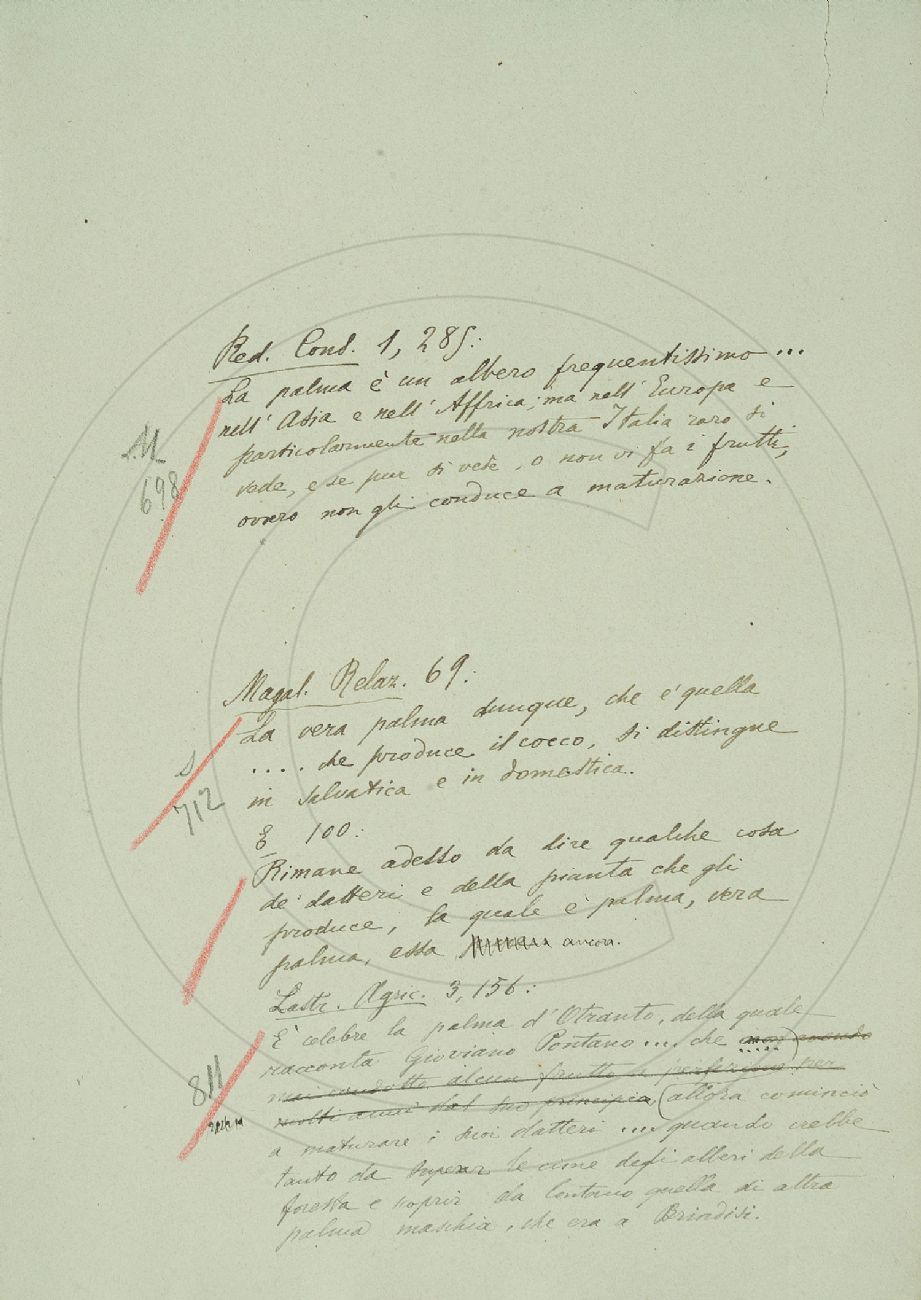 Red. Cons. 1, 285:
La palma è un albero frequentissimo ...
nell'Asia e nell'Affrica; ma nell'Europa e
particolarmente nella nostra Italia raro si
vede, e se pur si vede, o non vi fa i frutti,
ovvero non gli conduce a maturazione.
698
Magal. Relaz. 69:
La vera palma dunque, che è quella
.... che produce il cocco, si distingue
in salvatica e in domestica.
712
E 100:
Rimane adesso da dire qualche cosa
de' datteri e della pianta che gli
produce, la quale è palma, vera
palma, essa ancora.
Lastr. Agric. 3, 156:
È celebre la palma d'Otranto, della quale
racconta Gioviano Pontano ... che non avendo
mai condotto alcun frutto a perfezione per
molti anni dal suo principio, allora cominciò
a maturare i suoi datteri .... quando crebbe
tanto da superar le cime degli alberi della
foresta e scoprir da lontano quella di altra
palma maschia, che era a Brindisi.
811